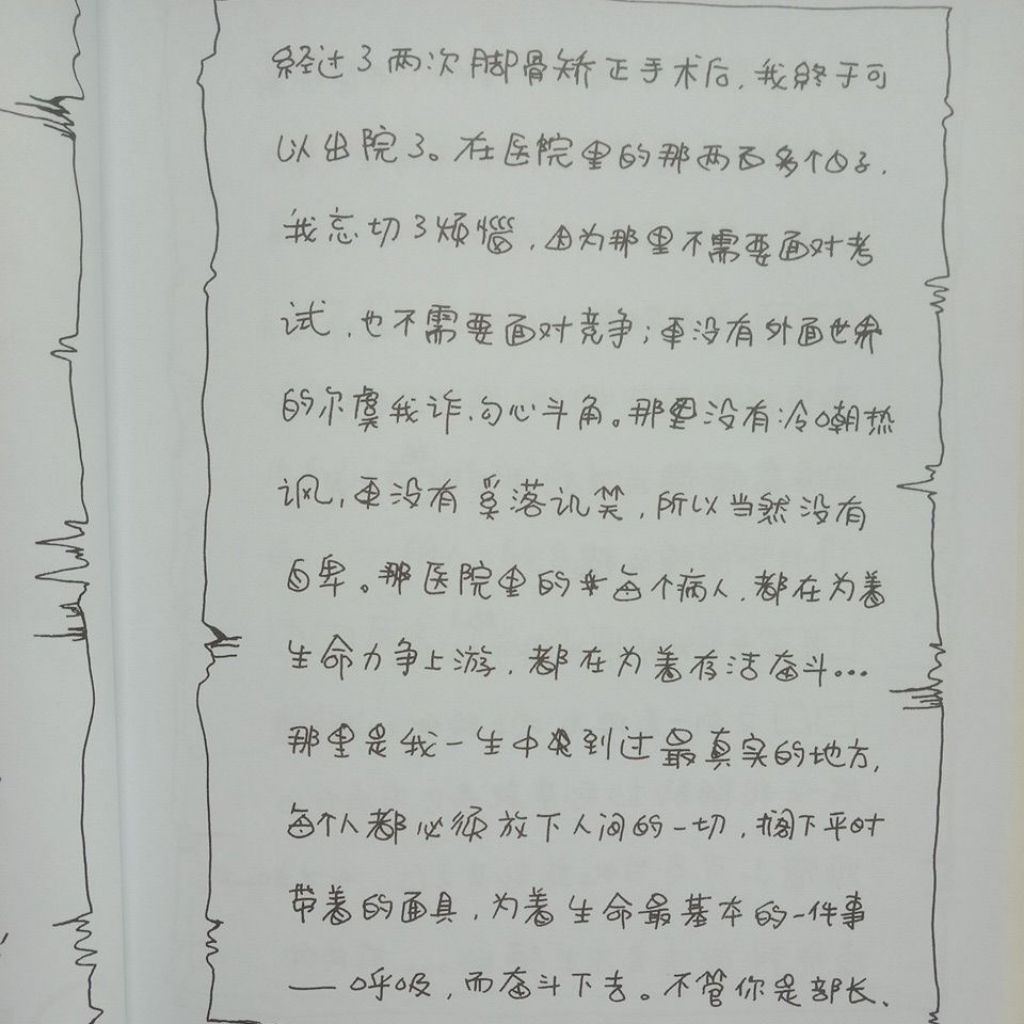 经过了两次脚骨矫正手术后,我终于可
以出院了。在医院里的那两百多个日子,
我忘切了烦恼,因为那里不需要面对考
试,也不需要面对竞争;更没有外面世界
的尔虞我诈、勾心斗角。那里没有冷嘲热
讽,更没有奚落讥笑,所以当然没有
自卑。那医院里的每个病人,都在为着
生命力争上游,都在为着存活奋斗...
那里是我一生中到过最真实的地方,
每个人都必须放下人间的一切,搁下平时
带着的面具,为着生命最基本的一件事
——呼吸,而奋斗下去。不管你是部长、